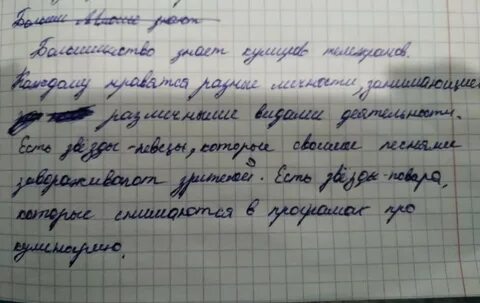 Большинство знает кумиров телеэкранов.
Каждому нравятся разные личности, занимающиеся
различными видами деятельности.
Есть звёзды-певцы, которые своими песнями
завораживают зрителей. Есть звёзды-повара,
которые снимаются в програмах про
кулинарию.